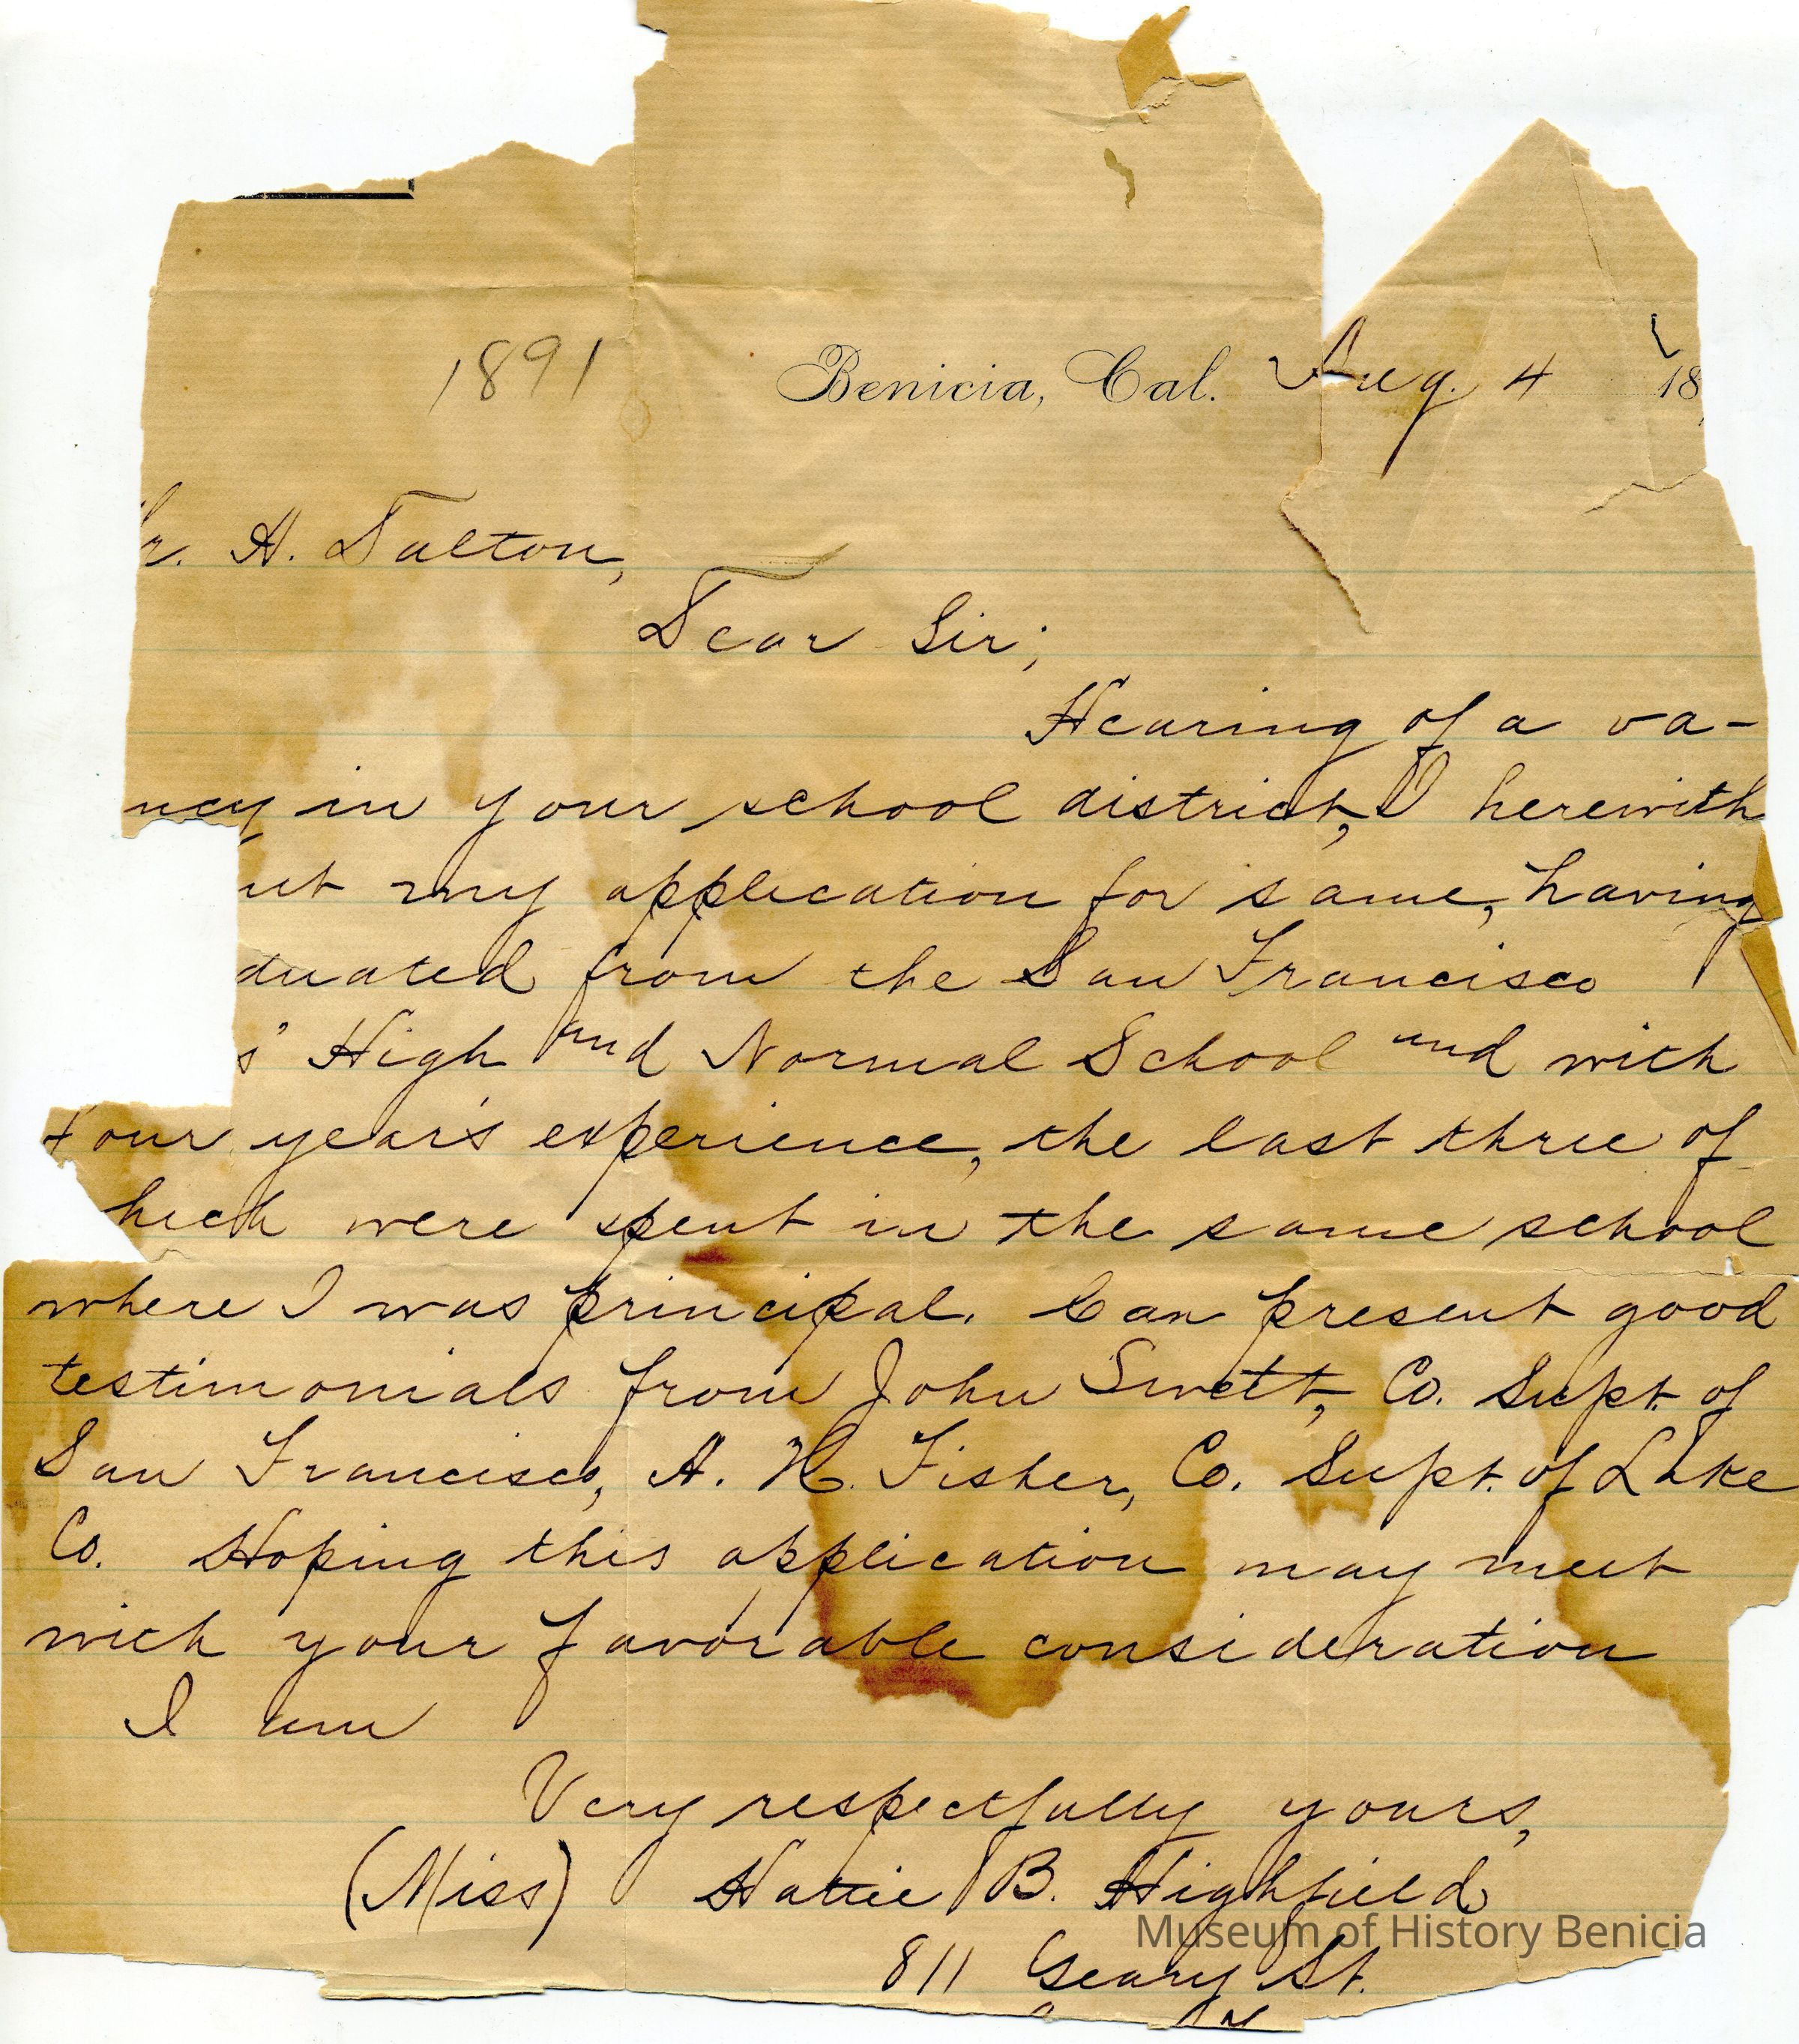 1891 Benicia, Cal. Aug. 4 18
r. H. Dalton,
Dear Sir;
Hearing of a va-
ncy in your school district, I herewith
my application for same, having
duated from the San Francisco
s' High and Normal School and with
four year's experience, the last three of
hich were spent in the same school
where I was principal. Can present good
testimonials from John Swett, Co. Supt. of
San Francisco, A. H. Fisher, Co. Supt. of Lake
Co. Hoping this application may meet
with your favorable consideration
I am
Very respectfully yours,
(Miss) Hattie B. Highfield
Museum of History Benicia
811 Geary St.